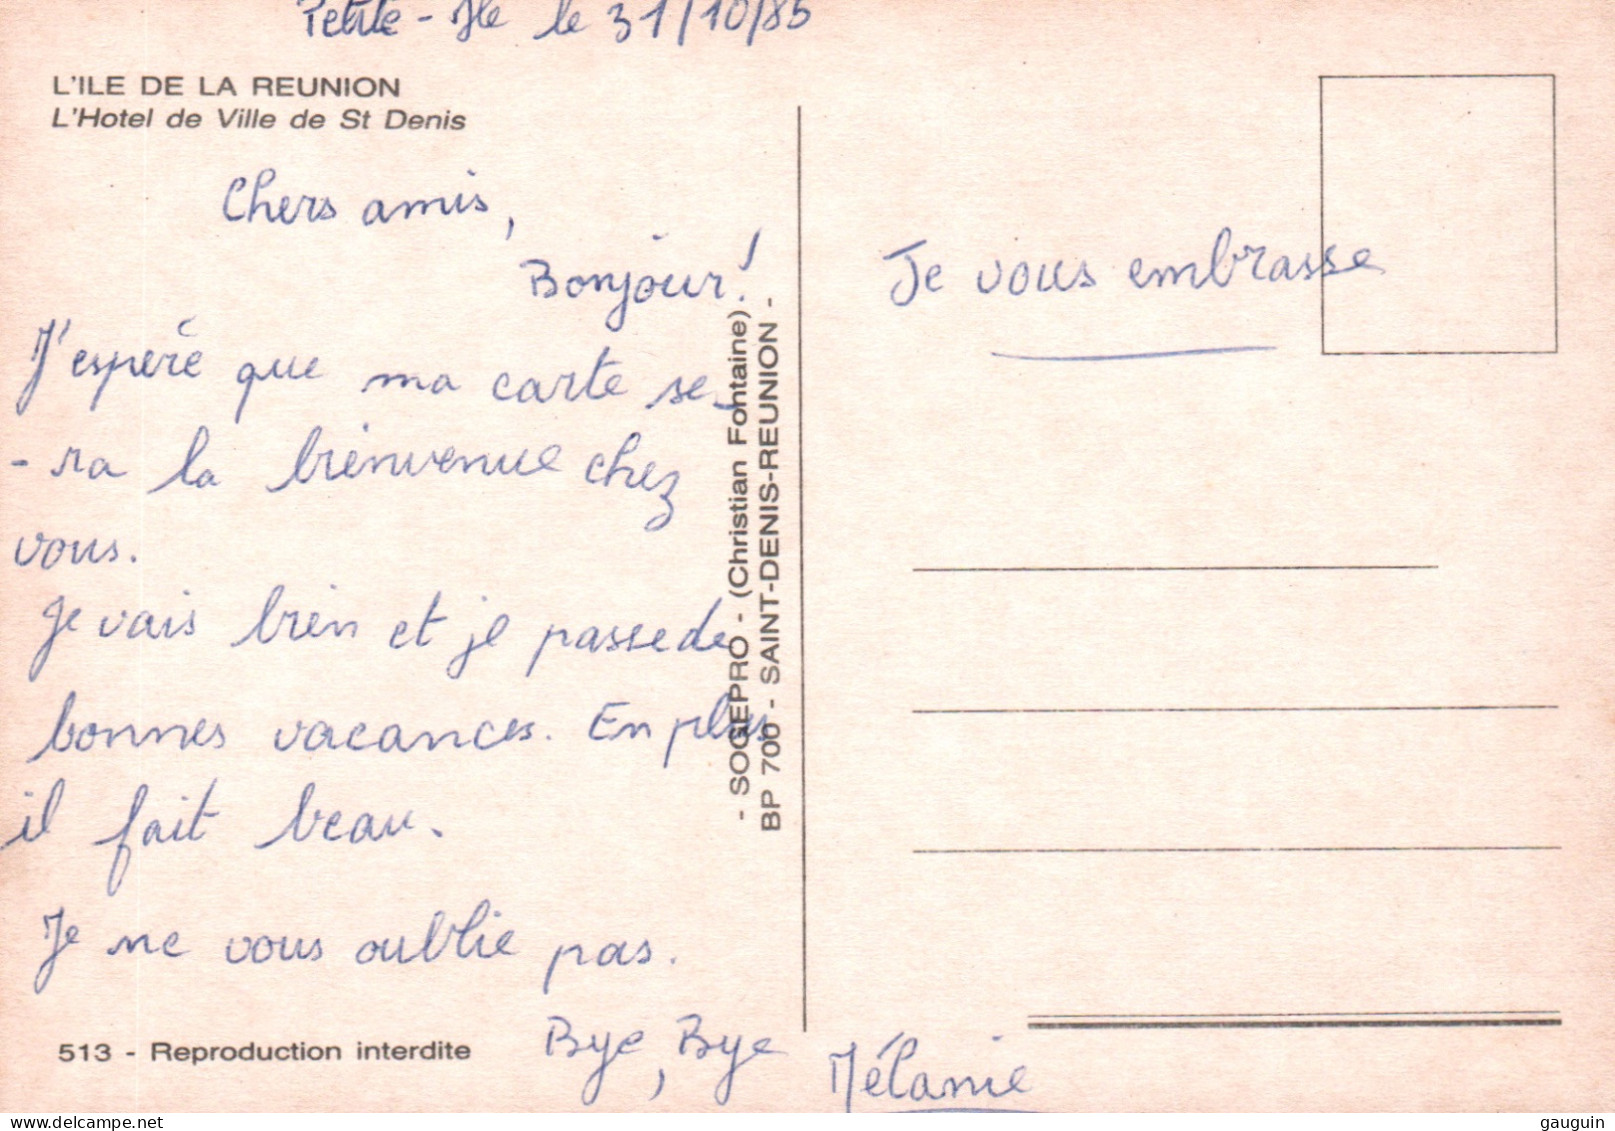 Petite-Ile le 31/10/85
L'ILE DE LA REUNION
L'Hotel de Ville de St Denis
Chers amis,
Bonjour!
J'espère que ma carte se-
-ra la bienvenue chez
vous.
Je vais bien et je passe de
bonnes vacances. En plus
il fait beau.
Je ne vous oublie pas.
Bye, Bye
Mélanie
513 - Reproduction interdite
- SOGEPRO - (Christian Fontaine) -
BP 700 - SAINT-DENIS-REUNION -
Je vous embrasse
gauguin _ _ _